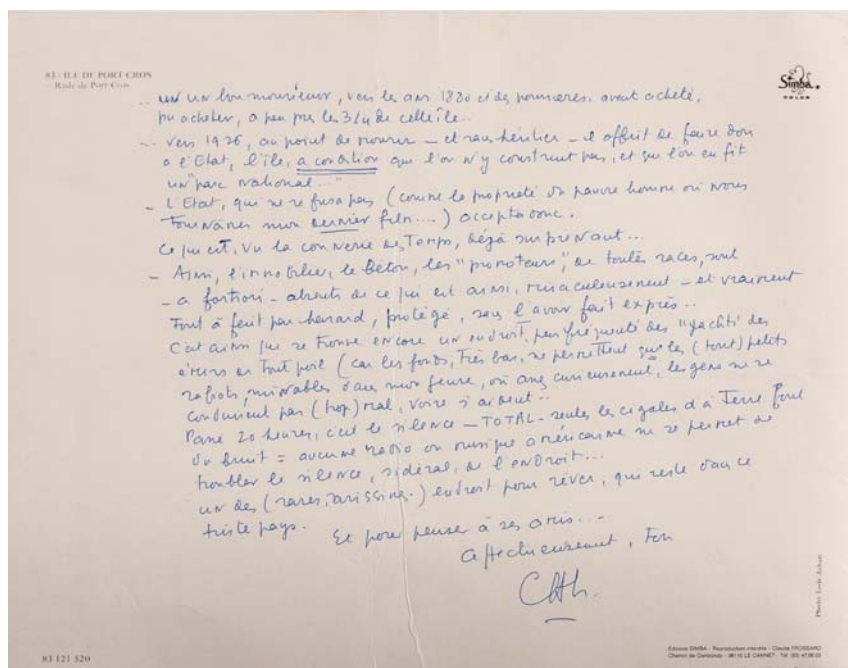 83 - ILE DE PORT CROS
— Rade de Port Cros
Simba
... un bon monsieur, vers les ans 1880 et des poussières, avait acheté,
pu acheter, à peu près les 3/4 de cette île...
- vers 1926, au point de mourir — et sans héritier — il offrit de faire don
à l'Etat, l'île, à condition que l'on n'y construit pas, et que l'on en fit
un "parc national..."
- L'Etat, qui ne refusa pas (comme la propriété du pauvre homme où nous
tournâmes mon dernier film....) accepta donc.
Ce qui est, vu la connerie des Temps, déjà surprenant...
- Ainsi, l'immobilier, le Béton, les "promoteurs", de toutes races, sont
- a fortiori - absents de ce qui est ainsi, miraculeusement — et vraiment
Tout à fait par hasard, protégé, sans l'avoir fait exprès..
C'est ainsi que se trouve encore un endroit, peu fréquenté des "yachts" des
émirs en tout poil (car les fonds, très bas, ne permettent que les (tout) petits
rafiots, minables dans mon genre, où curieusement, les gens ne se
conduisent pas (trop) mal, voire s'aident..
Passé 20 heures, c'est le silence — TOTAL - seules les cigales d'à Terre font
du bruit = aucune radio ou musique américaine ne se permet de
troubler le silence, sidéral, de l'endroit...
un des (rares, rarissimes.) endroit pour rêver, qui reste dans ce
triste pays.
Et pour penser à ses amis...
affectueusement, ton
Photo
83 121 520
Editions SIMBA - Reproduction interdite - Claude FROSSARD
Chemin de - 06110 LE CANNET - Tél. (93)